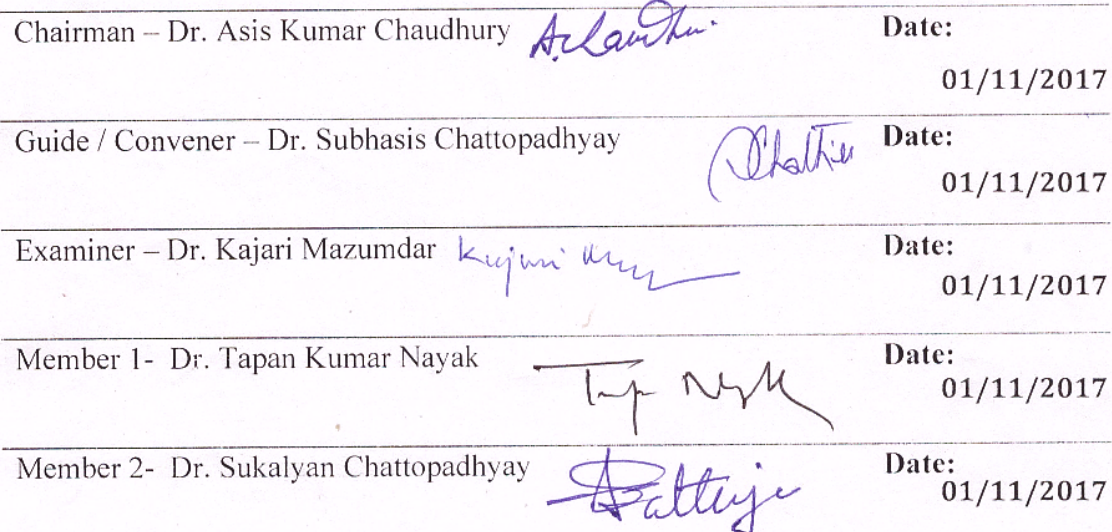 Chairman – Dr. Asis Kumar Chaudhury Date:
01/11/2017
Guide / Convener – Dr. Subhasis Chattopadhyay Date:
01/11/2017
Examiner – Dr. Kajari Mazumdar Date:
01/11/2017
Member 1- Dr. Tapan Kumar Nayak Date:
01/11/2017
Member 2- Dr. Sukalyan Chattopadhyay Date:
01/11/2017